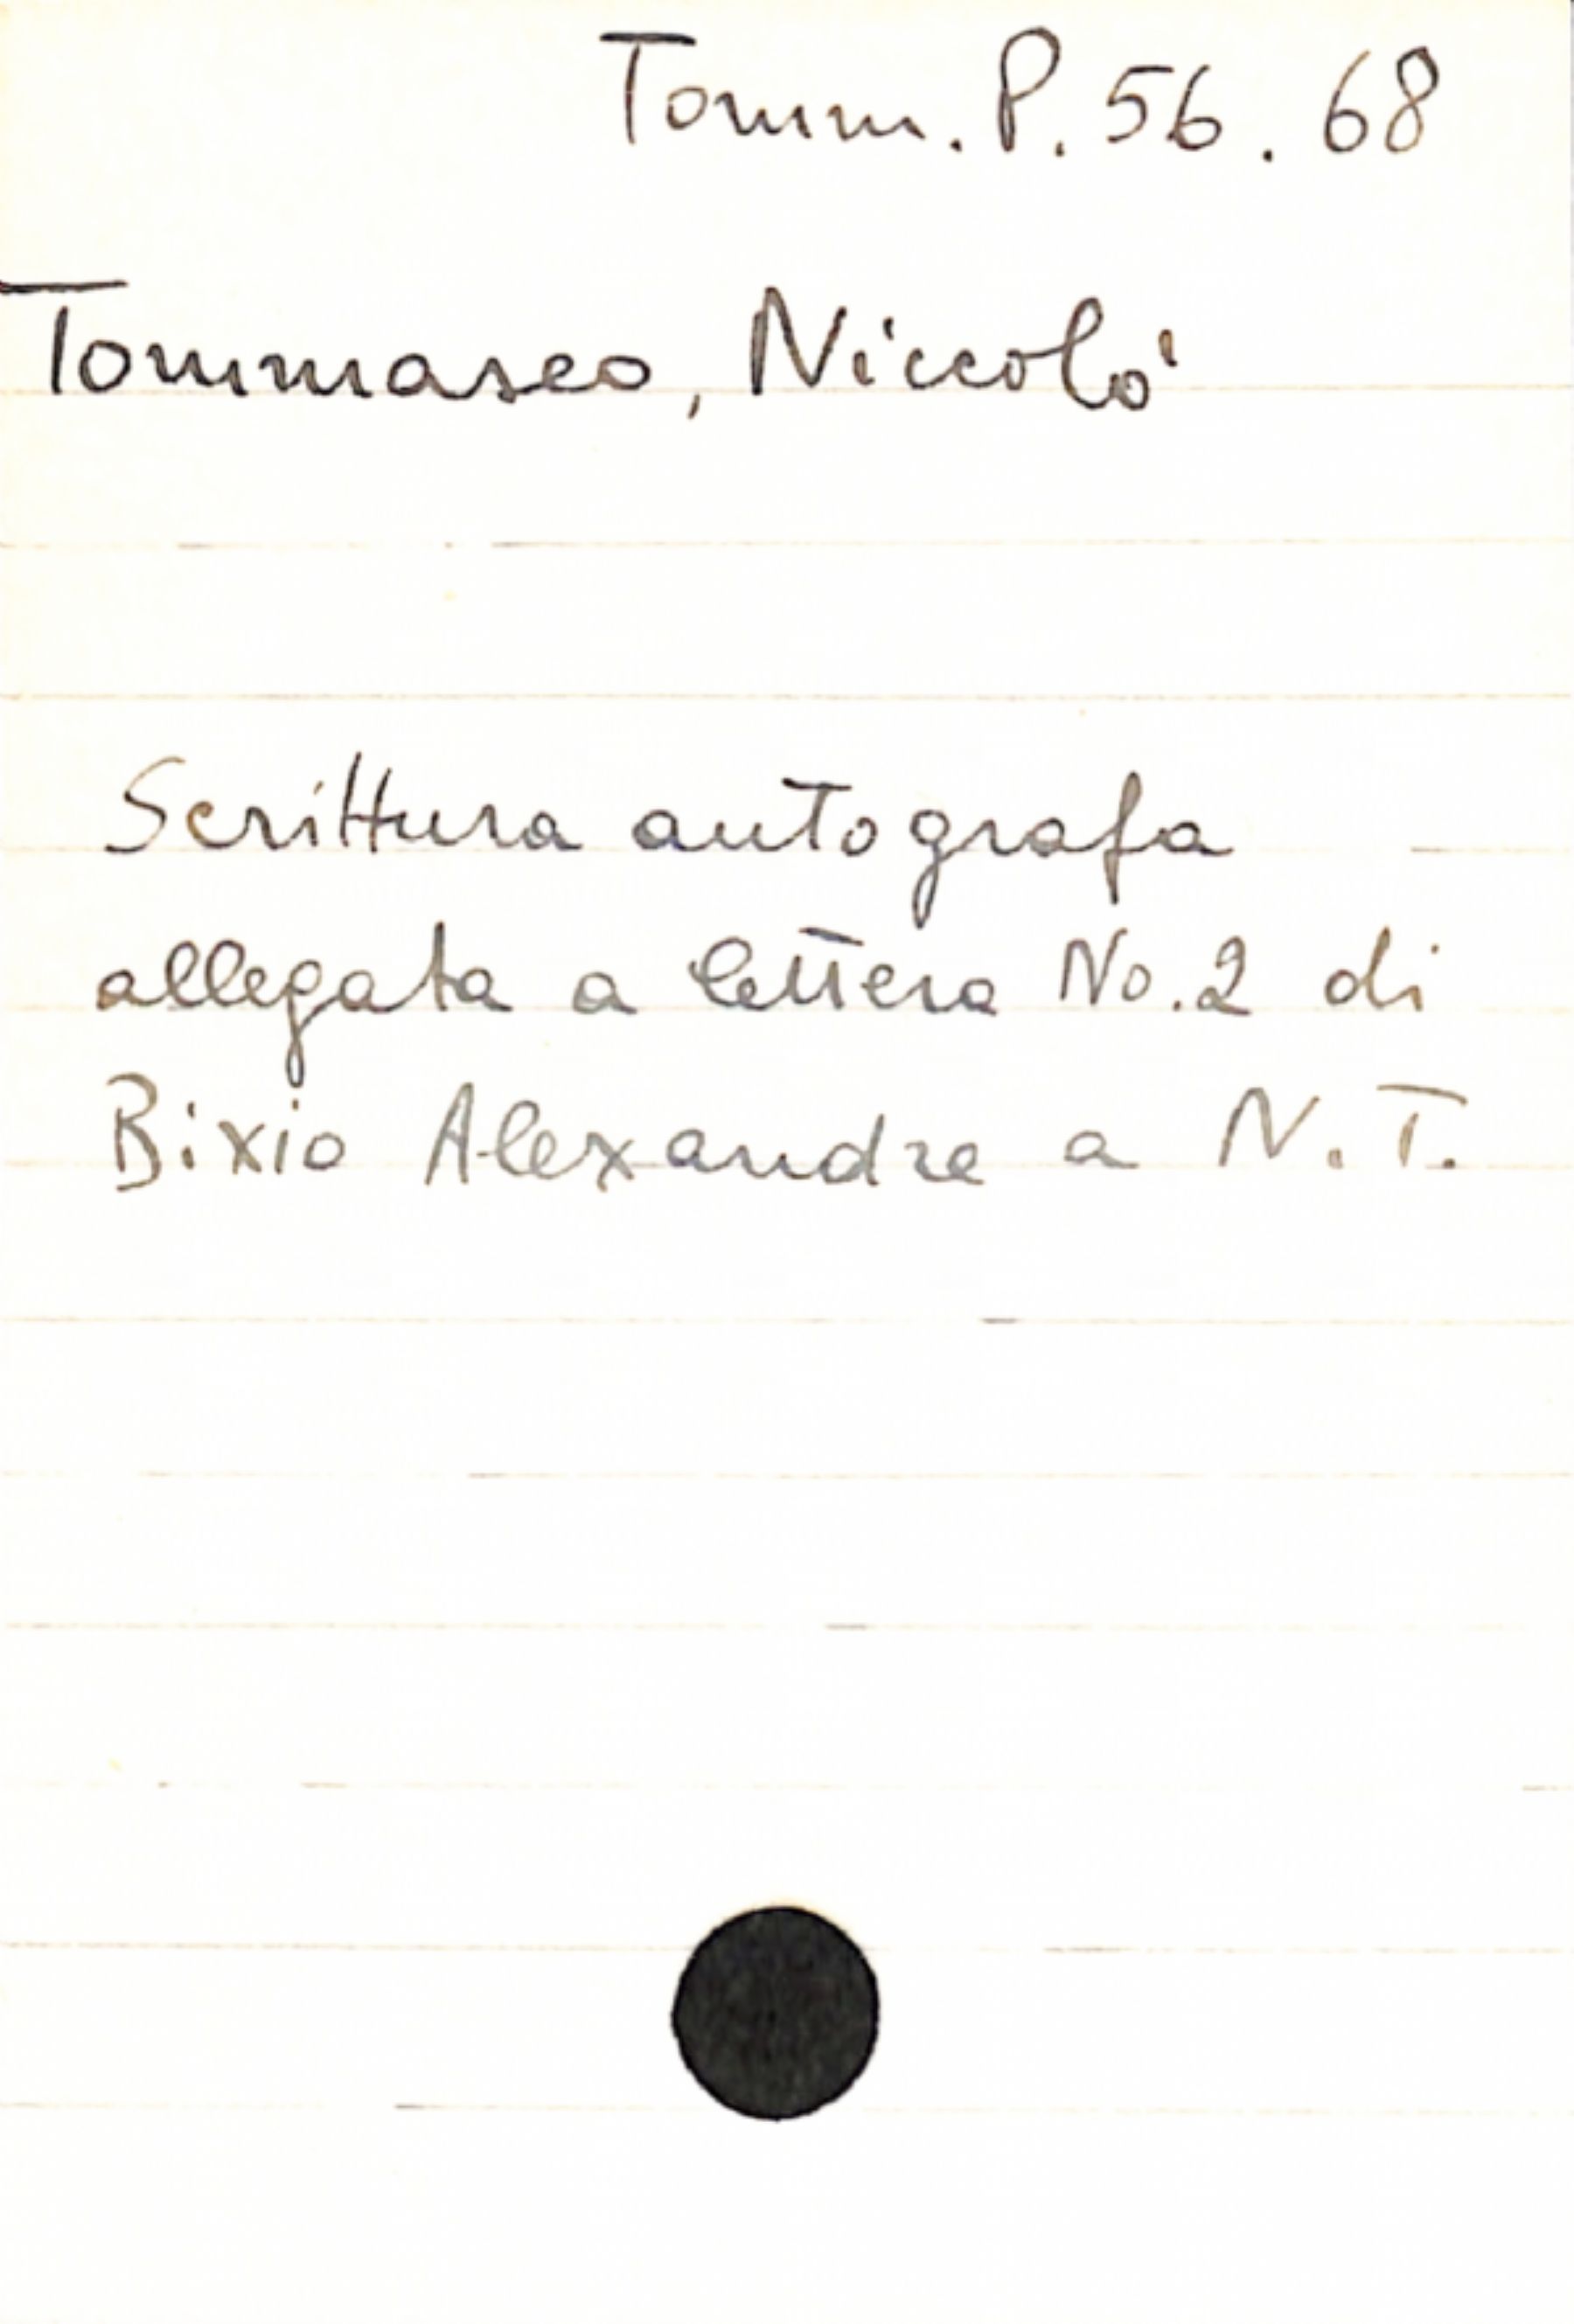 Tomm. P. 56. 68
Tommaseo, Niccolò
Scrittura autografa
allegata a lettera No. 2 di
Bixio Alexandre a N. T.